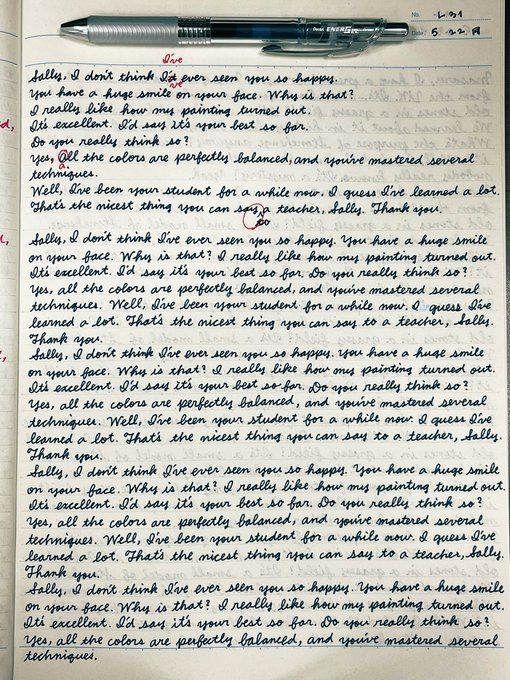 Pentel ENERGEL
No. L31
Date 5 22 月
I've
Sally, I don't think I't ever seen you so happy.
've
You have a huge smile on your face. Why is that?
I really like how my painting turned out.
It's excellent. I'd say it's your best so far.
Do you really think so?
Yes, all the colors are perfectly balanced, and you've mastered several
a
techniques.
Well, I've been your student for a while now. I guess I've learned a lot.
That's the nicest thing you can say a teacher, Sally. Thank you.
to
Sally, I don't think I've ever seen you so happy. You have a huge smile
on your face. Why is that? I really like how my painting turned out.
It's excellent. I'd say it's your best so far. Do you really think so?
Yes, all the colors are perfectly balanced, and you've mastered several
techniques. Well, I've been your student for a while now. I guess I've
learned a lot. That's the nicest thing you can say to a teacher, Sally.
Thank you.
Sally, I don't think I've ever seen you so happy. You have a huge smile
on your face. Why is that? I really like how my painting turned out.
It's excellent. I'd say it's your best so far. Do you really think so?
Yes, all the colors are perfectly balanced, and you've mastered several
techniques. Well, I've been your student for a while now. I guess I've
learned a lot. That's the nicest thing you can say to a teacher, Sally.
Thank you.
Sally, I don't think I've ever seen you so happy. You have a huge smile
on your face. Why is that? I really like how my painting turned out.
It's excellent. I'd say it's your best so far. Do you really think so?
Yes, all the colors are perfectly balanced, and you've mastered several
techniques. Well, I've been your student for a while now. I guess I've
learned a lot. That's the nicest thing you can say to a teacher, Sally.
Thank you.
Sally, I don't think I've ever seen you so happy. You have a huge smile
on your face. Why is that? I really like how my painting turned out.
It's excellent. I'd say it's your best so far. Do you really think so?
Yes, all the colors are perfectly balanced, and you've mastered several
techniques.